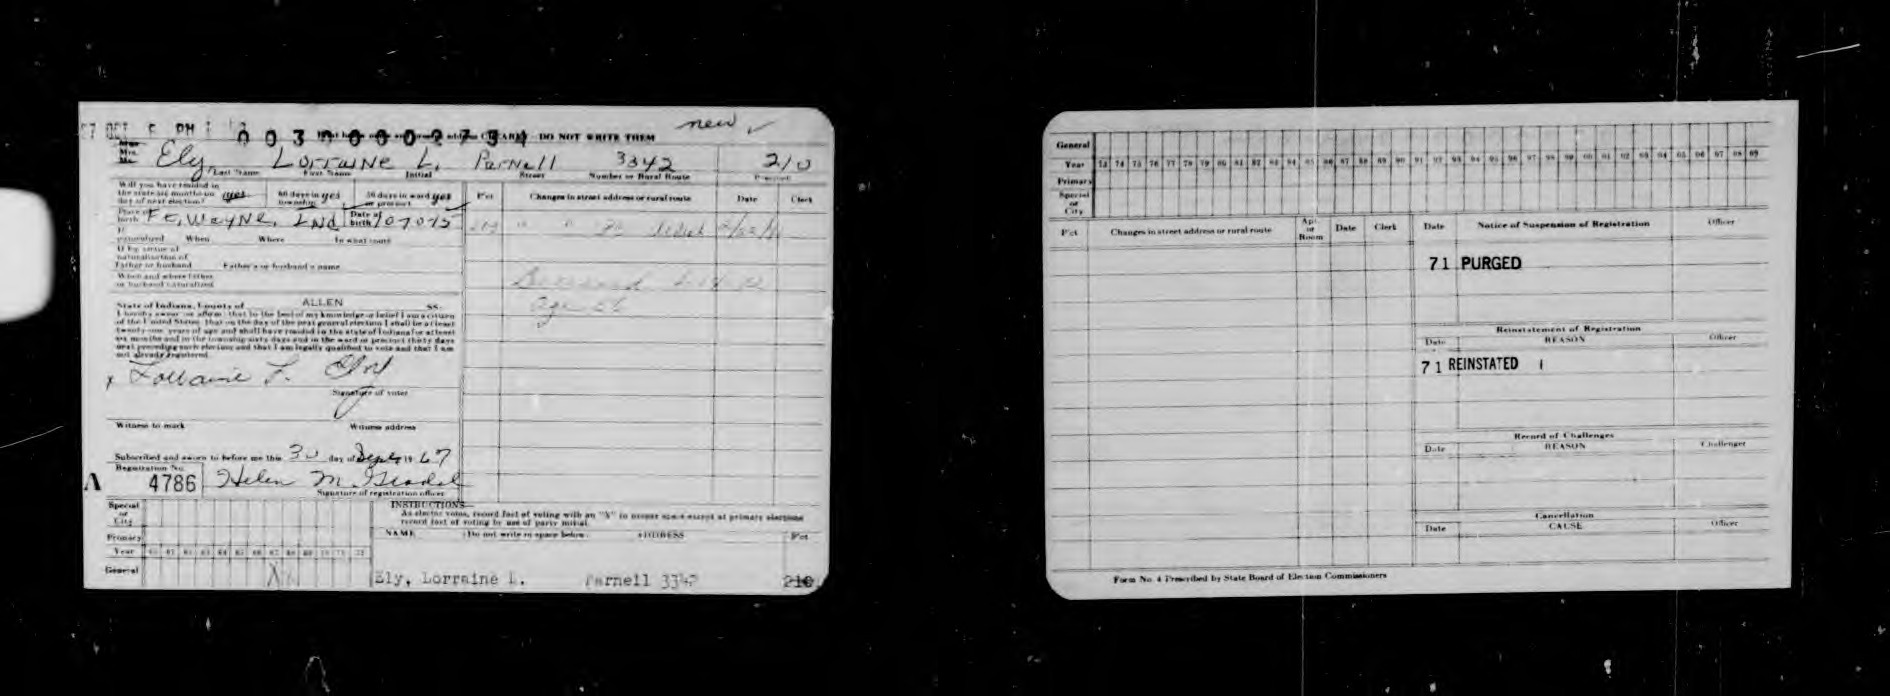 67 OCT 5 PM
00300002754
DO NOT WRITE THEM
new ✓
Mrs.
Ely, Lorraine L. Parnell 3342 210
Last Name First Name Initial Street Number or Rural Route Precinct
Will you have resided in
the state six months on
day of next election? yes
60 days in
township yes
30 days in ward
or precinct yes
Pct Changes in street address or rural route Date Clerk
Place of
birth Ft. Wayne, Ind
Date of
birth 107075
If
naturalized When Where In what court
If by virtue of
naturalization of
Father or husband Father's or husband's name
When and where father
or husband naturalized
Deceased
age 56
State of Indiana, County of ALLEN SS.
I hereby swear or affirm that to the best of my knowledge or belief I am a citizen
of the United States; that on the day of the next general election I shall be at least
twenty-one years of age and shall have resided in the state of Indiana for at least
six months and in the township sixty days and in the ward or precinct thirty days
next preceding such election; and that I am legally qualified to vote and that I am
not already registered.
x Lorraine L. Ely
Signature of voter
Witness to mark Witness address
Subscribed and sworn to before me this 30 day of Sept 19 67
Registration No.
A 4786 Helen M.
Signature of registration officer
Special
or
City
Primary
Year 61 62 63 64 65 66 67 68 69 70 71 72
General X
INSTRUCTIONS—
As elector votes, record fact of voting with an "X" in proper space except at primary elections
record fact of voting by use of party initial.
NAME (Do not write in space below) ADDRESS Pct
Ely, Lorraine L. Parnell 3342 210
General
Year 73 74 75 76 77 78 79 80 81 82 83 84 85 86 87 88 89 90 91 92 93 94 95 96 97 98 99 00 01 02 03 04 05 06 07 08 09
Primary
Special
or
City
Pct Changes in street address or rural route Apt.
or
Room Date Clerk
Date Notice of Suspension of Registration Officer
71 PURGED
Reinstatement of Registration
Date REASON Officer
71 REINSTATED
Record of Challenges
Date REASON Challenger
Cancellation
Date CAUSE Officer
Form No. 4 Prescribed by State Board of Election Commissioners